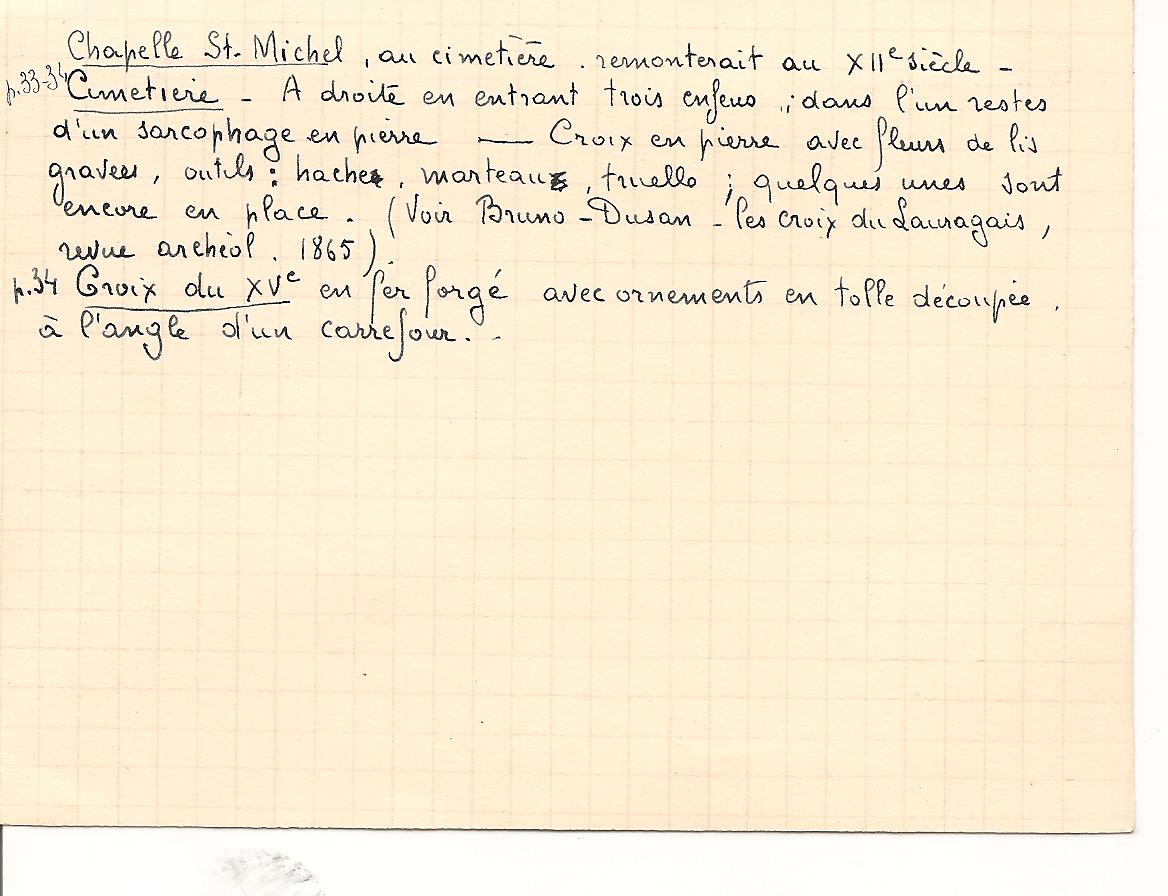 Chapelle St. Michel, au cimetière. remonterait au XIIe siècle -
p.33-34 Cimetière - A droite en entrant trois enfeus ; dans l'un restes
d'un sarcophage en pierre — Croix en pierre avec fleurs de lis
gravées, outils : hache, marteau, truelle ; quelques unes sont
encore en place. (Voir Bruno-Dusan - les croix du Lauragais,
revue archéol. 1865).
p.34 Croix du XVe en fer forgé avec ornements en tolle découpée.
à l'angle d'un carrefour.